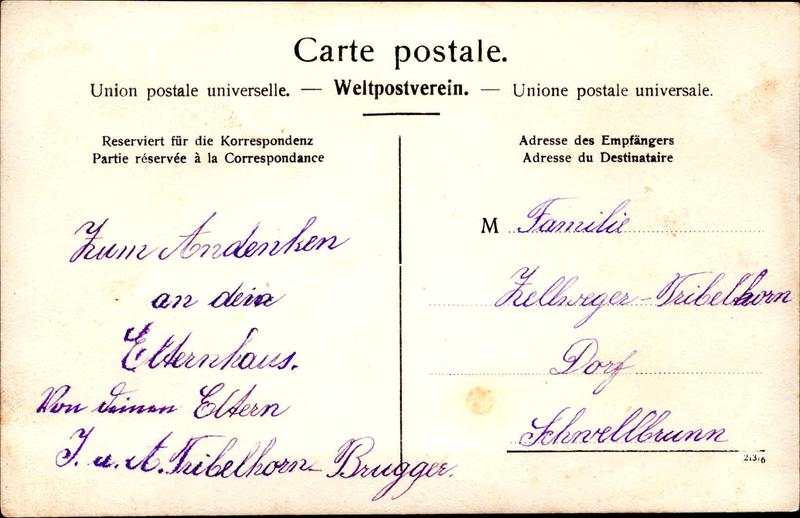 Carte postale.
Union postale universelle. — Weltpostverein. — Unione postale universale.
Reserviert für die Korrespondenz
Partie réservée à la Correspondance
Zum Andenken
an dein
Elternhaus.
Von deinen Eltern
J. u. A. Tribelhorn-Brugger.
Adresse des Empfängers
Adresse du Destinataire
M Familie
Zellweger-Tribelhorn
Dorf
Schwellbrunn
21376